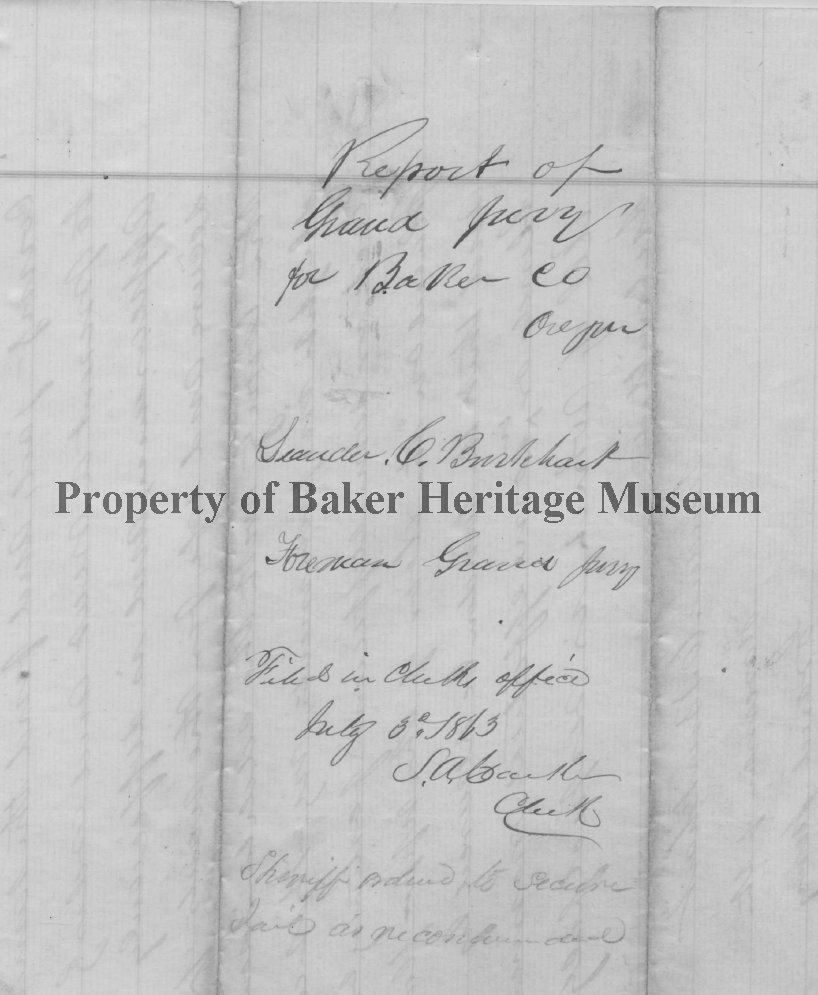 Report of
Grand Jury
for Baker Co
Oregon
Leander. C. Burkhart
Property of Baker Heritage Museum
Foreman Grand Jury
Filed in Clerks office
July 3d 1863
S. A.
Clerk
Sheriff ordered to secure
Jail as recommended